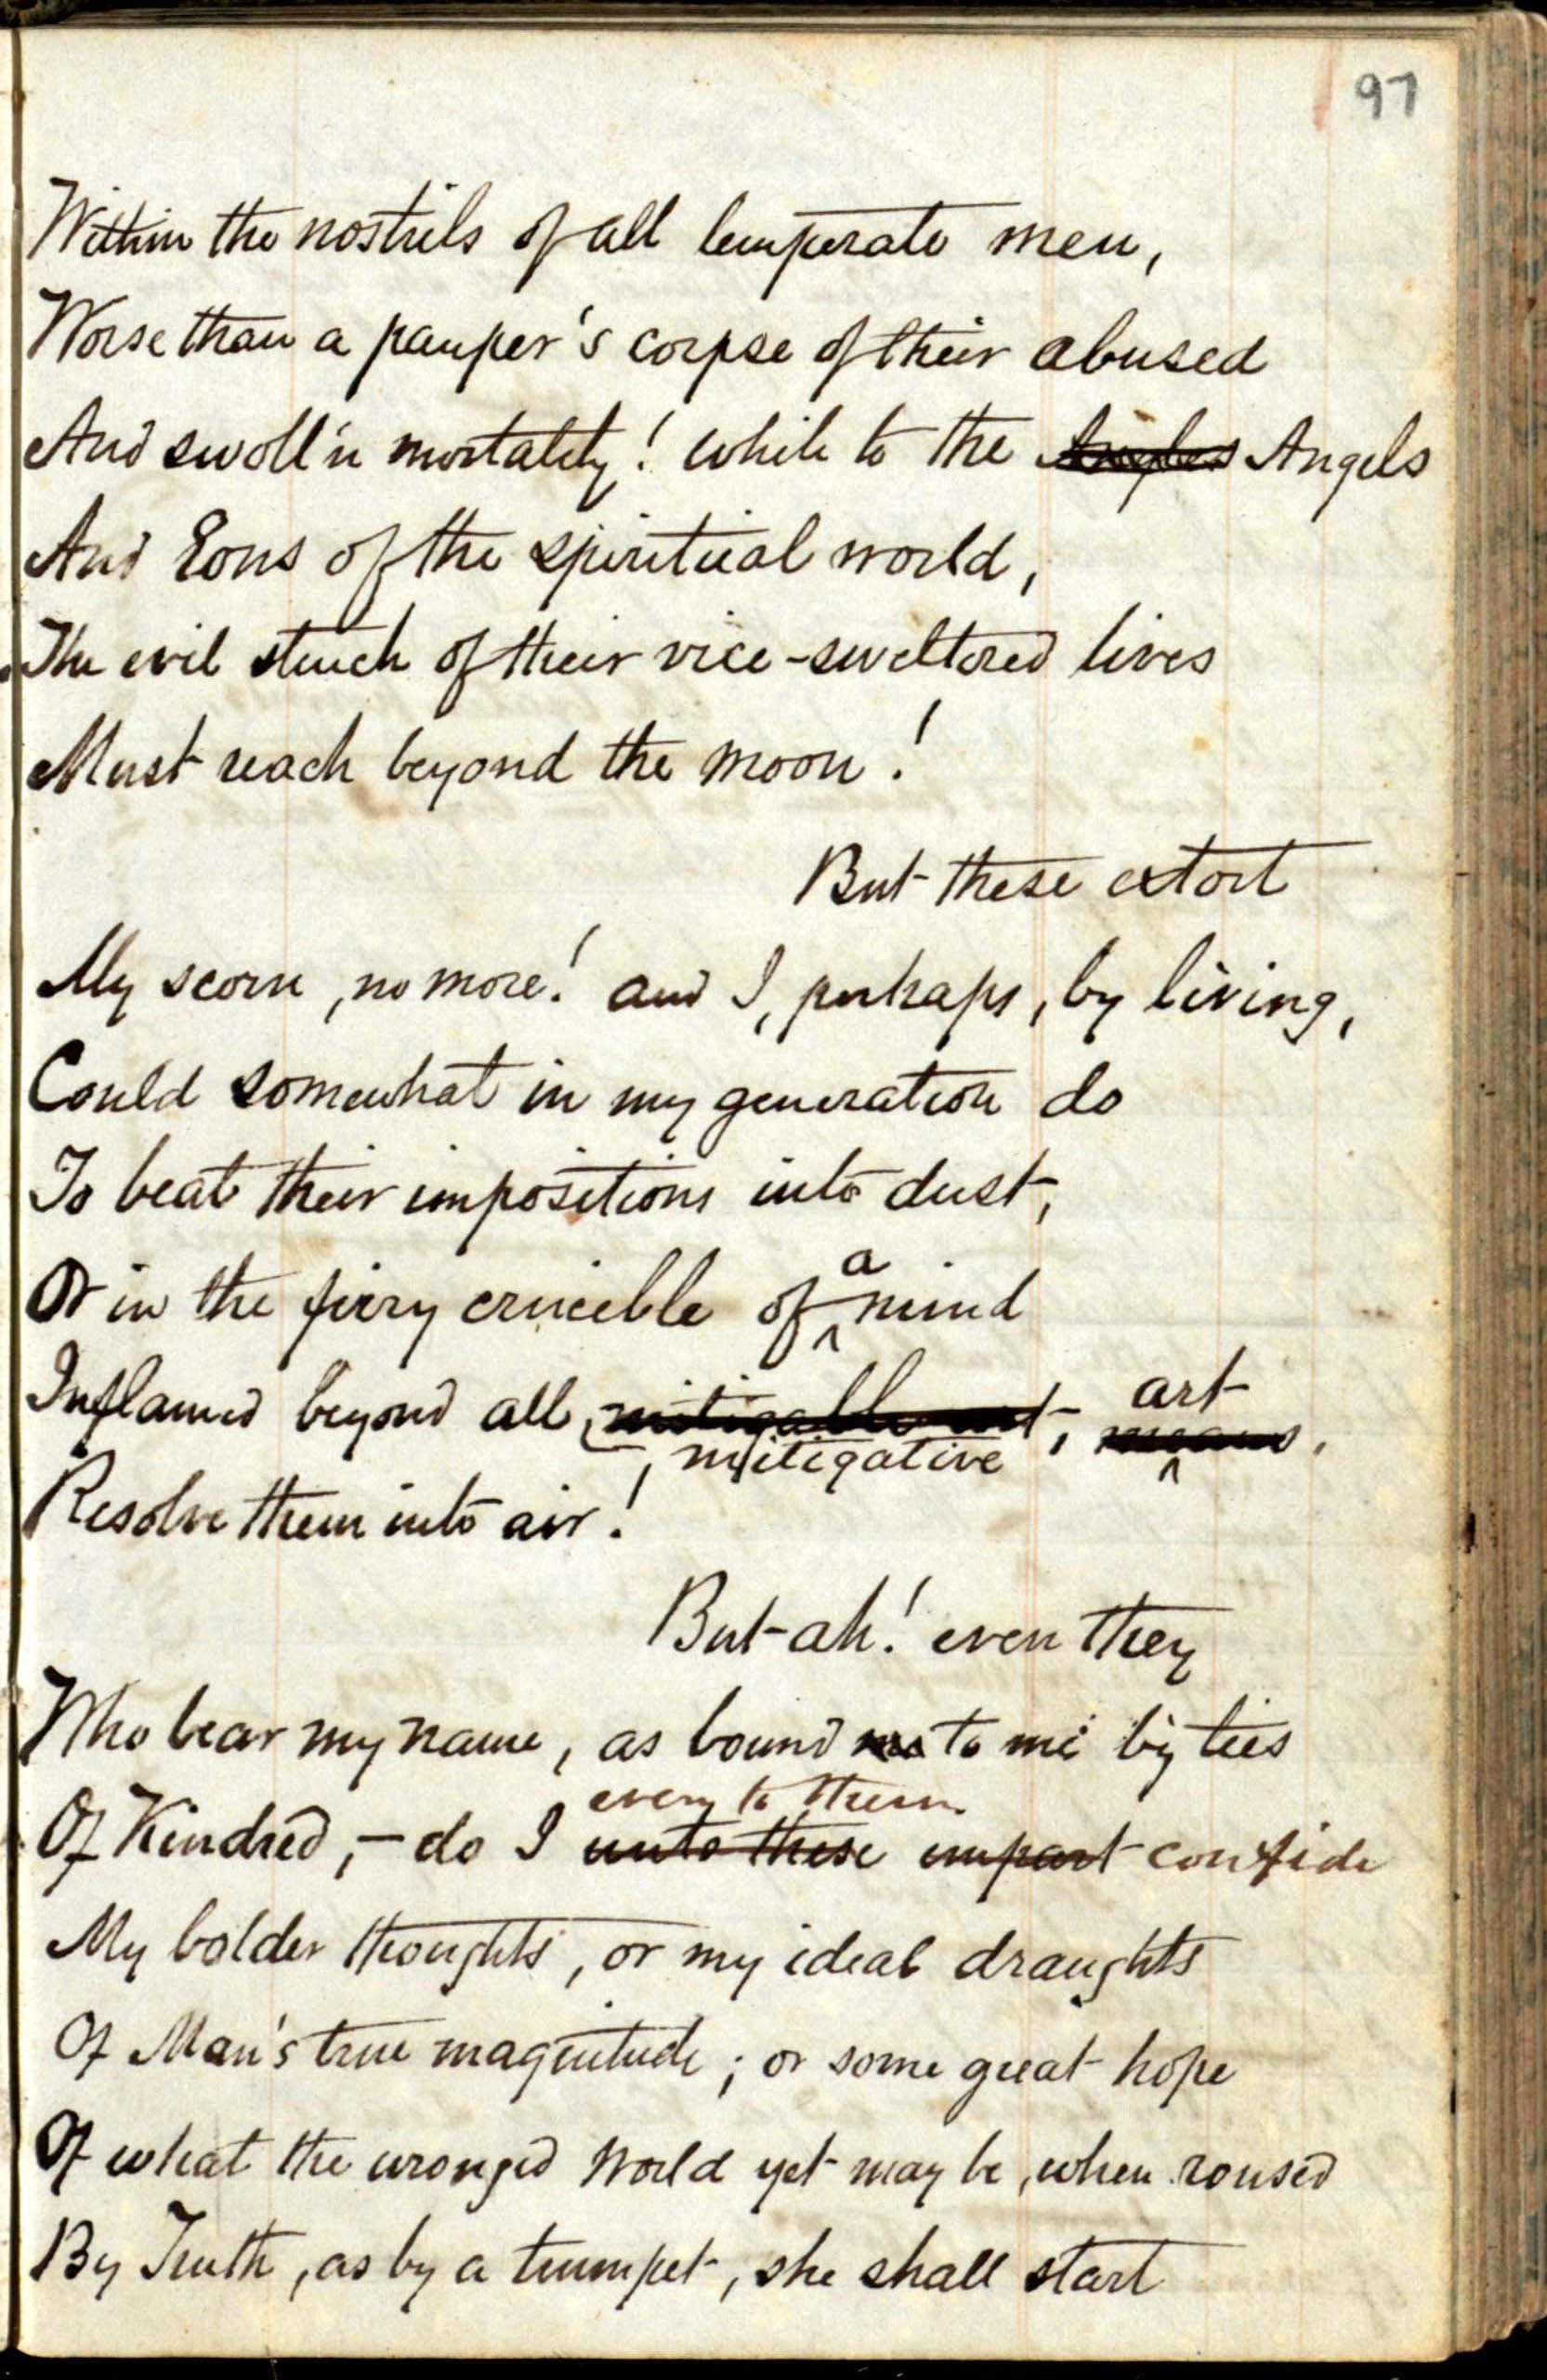 97
Within the nostrils of all temperate men,
Worse than a pauper's corpse of their abused
And swoll'n mortality! while to the Angels
And Eons of the spiritual world,
The evil stench of their vice-sweltered lives
Must reach beyond the moon!
But these extort
My scorn, no more! and I, perhaps, by living,
Could somewhat in my generation do
To beat their impositions into dust,
a
Or in the fiery crucible of mind
art
Inflamed beyond all mitigable art, means,
mitigative
Resolve them into air!
But ah! even they
Who bear my name, as bound to me by ties
even to them
Of Kindred, – do I unto these impart confide
My bolder thoughts, or my ideal draughts
Of Man's true magnitude; or some great hope
Of what the wronged World yet may be, when roused
By Truth, as by a trumpet, she shall start